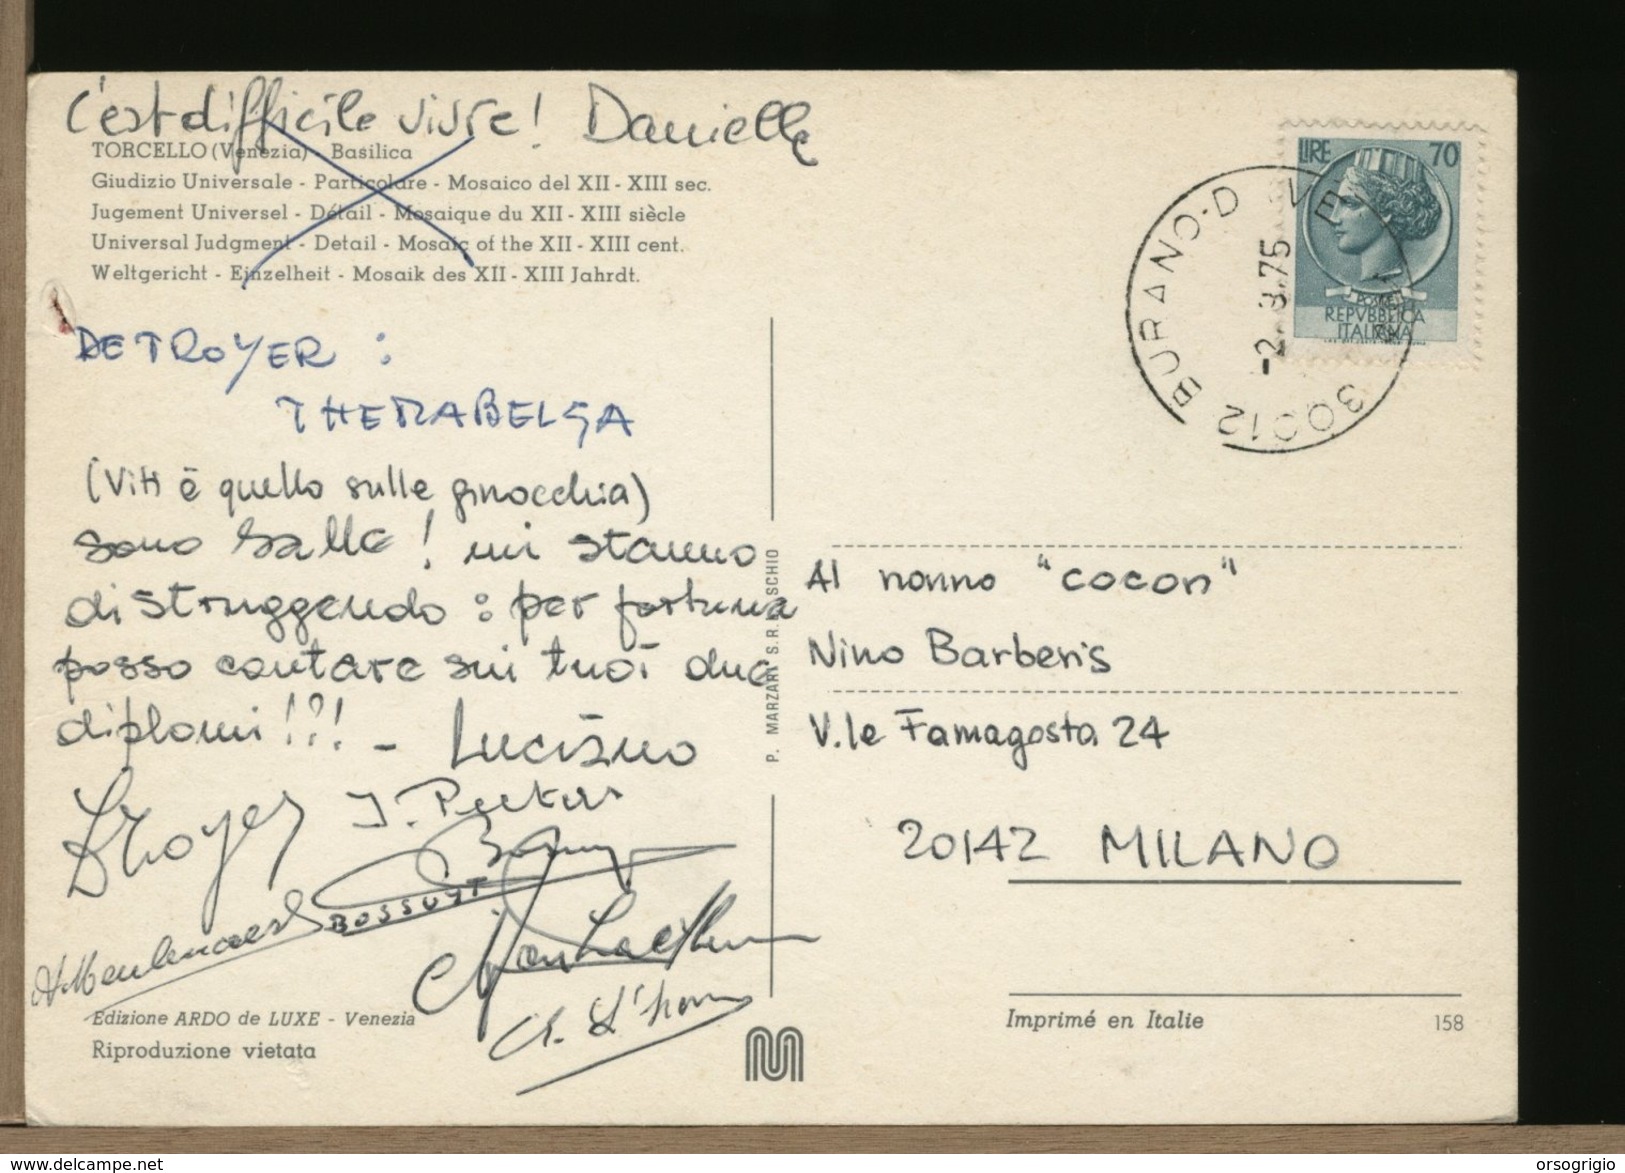 C'est difficile vivre! Danielle
TORCELLO (Venezia) - Basilica
Giudizio Universale - Particolare - Mosaico del XII - XIII sec.
Jugement Universel - Détail - Mosaique du XII - XIII siècle
Universal Judgment - Detail - Mosaic of the XII - XIII cent.
Weltgericht - Einzelheit - Mosaik des XII - XIII Jahrdt.
DETROYER :
THERABELGA
(Viti è quello sulle ginocchia)
sono balle! mi stanno
distruggendo : per fortuna
posso contare sui tuoi due
diplomi!?! - Luciano
J. Peeters
BOSSUYT
A. Meulenaere
Edizione ARDO de LUXE - Venezia
Riproduzione vietata
P. MARZARI S.R.L. SCHIO
LIRE 70
POSTE
REPVBBLICA
ITALIANA
30012 BURANO-D VE
-2.8.75
Al nonno "cocon"
Nino Barberis
V.le Famagosta 24
20142 MILANO
Imprimé en Italie
158
delcampe.net
orsogrigio